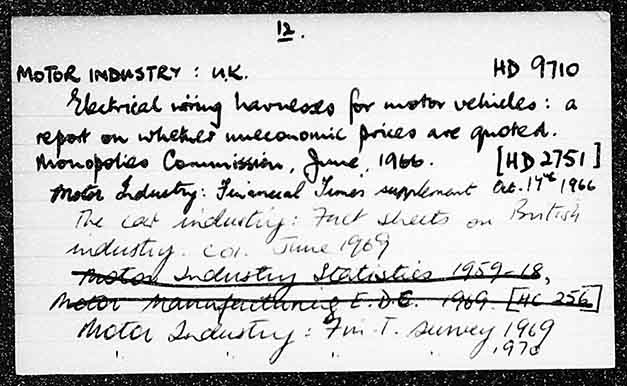 12.
MOTOR INDUSTRY : U.K. HD 9710
Electrical wiring harnesses for motor vehicles : a
report on whether uneconomic prices are quoted.
Monopolies Commission, June, 1966. [HD 2751]
Motor Industry: Financial Times supplement Oct. 17th 1966
The car industry: Fact sheets on British
industry. COI. June 1969
Motor Industry Statistics 1959-68,
Motor Manufacturing E.D.C. 1969. [HC 256]
Motor Industry : Fin. T. survey 1969
1970